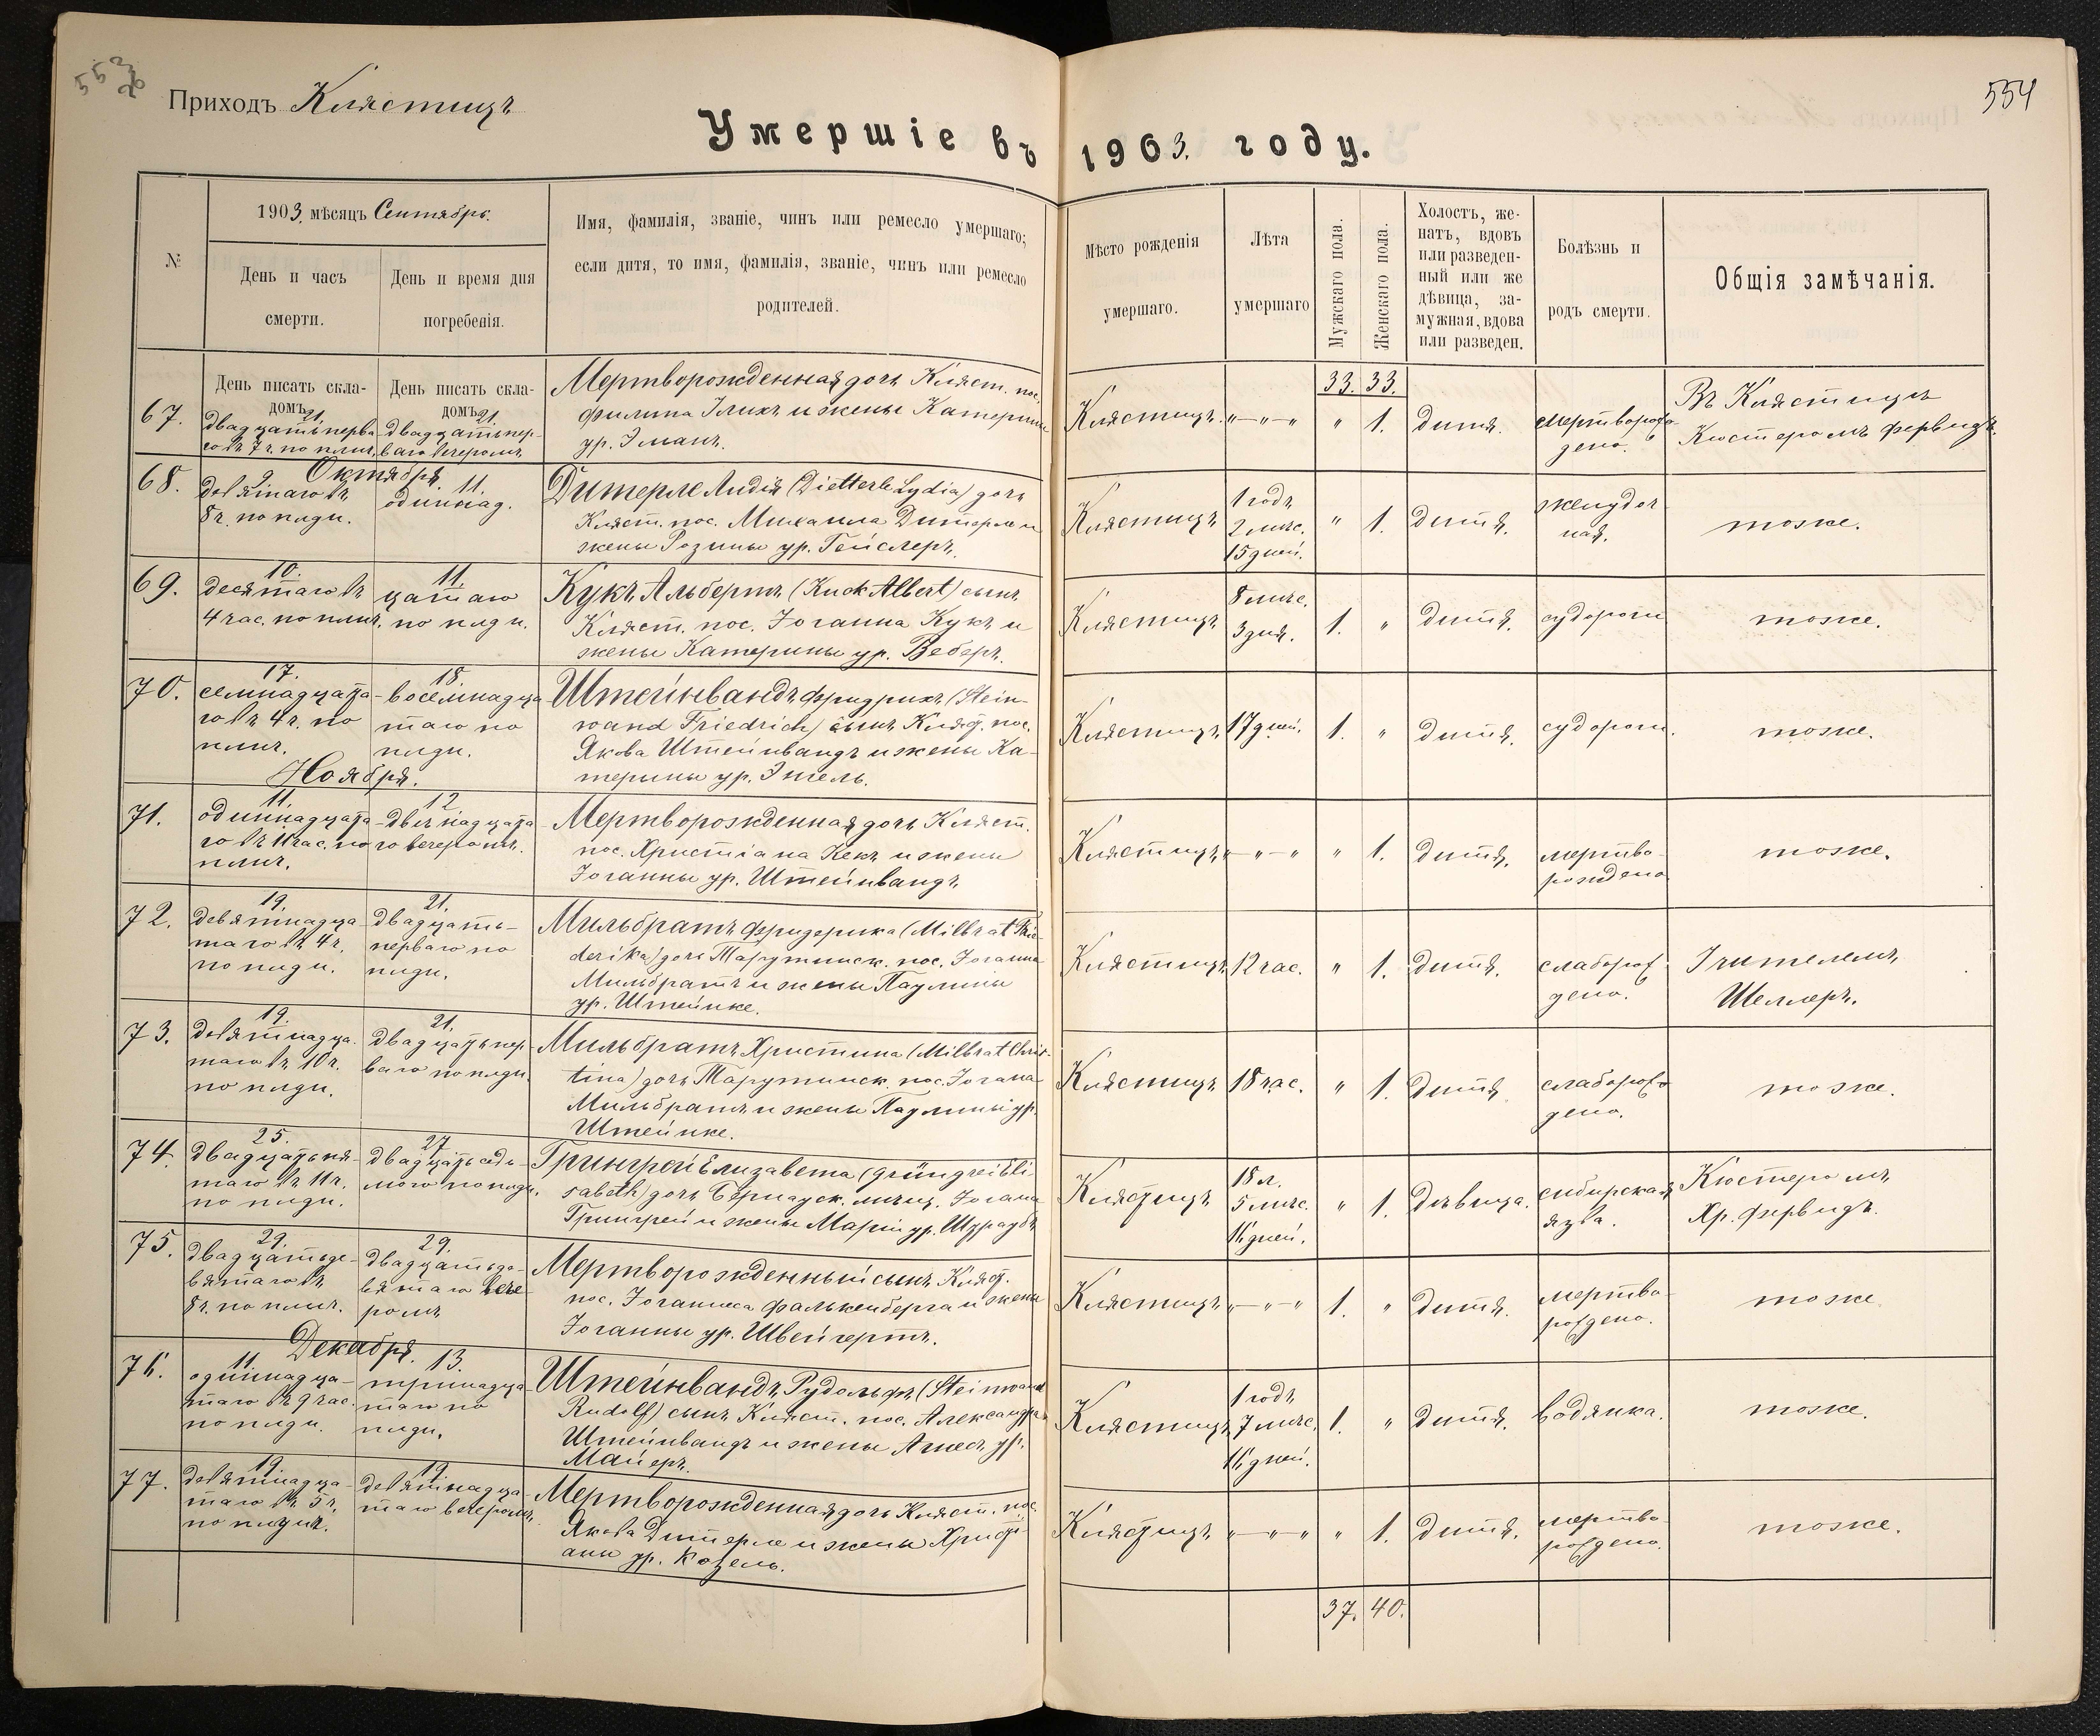 553
Приходъ Клястицъ
554
Умершіе въ 1903. году.
№
1903. мѣсяцъ Сентябрь.
День и часъ
смерти.
День и время дня
погребенія.
Имя, фамилія, званіе, чинъ или ремесло умершаго;
если дитя, то имя, фамилія, званіе, чинъ или ремесло
родителей.
Мѣсто рожденія
умершаго.
Лѣта
умершаго
Мужскаго пола.
Женскаго пола.
Холостъ, же-
натъ, вдовъ
или разведен-
ный или же
дѣвица, за-
мужная, вдова
или разведен.
Болѣзнь и
родъ смерти.
Общія замѣчанія.
День писать скла-
домъ.
День писать скла-
домъ.
33. 33.
67.
21.
двадцать перва-
го въ 7 ч. по плнч.
21.
двадцать пер-
ваго вечеромъ.
Мертворожденная дочь Кляст. пос.
Филипа Элихъ и жены Катерины
ур. Эманъ.
Клястицъ.
" — " — "
" 1.
дитя.
мертворож
дено.
Въ Клястицѣ
Кюстеромъ Фервидъ.
Октября.
68.
9.
девятаго въ
8 ч. по плдн.
11.
одиннад.
Дитерле Лидія (Dietterle Lydia) дочь
Кляст. пос. Михаила Дитерле и
жены Розины ур. Гейслеръ.
Клястицъ
1 годъ
2 мѣс.
15 дней.
" 1.
дитя.
желудоч
ная.
тоже.
69.
10.
десятаго въ
4 час. по плнч.
11.
цатаго
по плдн.
Кукъ Альбертъ (Kuck Albert) сынъ
Кляст. пос. Іоганна Кукъ и
жены Катерины ур. Веберъ.
Клястицъ
8 мѣс.
3 дня.
1. "
дитя.
судороги
тоже.
70.
17.
семнадцата-
го въ 4 ч. по
плнч.
18.
восемнадца
таго по
плдн.
Штейнвандъ Фридрихъ (Stein-
wand Friedrich) сынъ Кляст. пос.
Якова Штейнвандъ и жены Ка-
терины ур. Энгель.
Клястицъ.
17 дней.
1. "
дитя.
судороги.
тоже.
Ноября.
71.
11.
одиннадцата-
го въ 11 час. по
плнч.
12
двѣнадцата-
го вечеромъ.
Мертворожденная дочь Кляст.
пос. Христіана Кекъ и жены
Іоганны ур. Штейнвандъ.
Клястицъ
" — " — "
" 1.
дитя.
мертво-
рождено
тоже.
72.
19.
девятнадца-
таго въ 4 ч.
по плдн.
21.
двадцать-
перваго по
плдн.
Мильбратъ Фридерика (Milbrat Frie-
derika) дочь Тарутинск. пос. Іоганна
Мильбратъ и жены Паулины
ур. Штейнке.
Клястицъ
12 час.
" 1.
дитя.
слаборож
дено.
Учителемъ
Шеллеръ.
73.
19.
девятнадца-
таго въ 10 ч.
по плдн.
21.
двадцать пер-
ваго по плдн.
Мильбратъ Христина (Milbrat Chris-
tina) дочь Тарутинск. пос. Іогана
Мильбратъ и жены Паулины ур.
Штейнке.
Клястицъ
18 час.
" 1.
дитя
слаборож
дено.
тоже.
74.
25.
двадцать пя-
таго въ 11 ч.
по плдн.
27
двадцать седь-
мого по плдн.
Грингрей Елизавета (Grüngrei Eli-
sabeth) дочь Бернадск. мѣщ. Іогана
Грингрей и жены Маріи ур. Шураубъ
Клястицъ
18 л.
5 мѣс.
16 дней.
" 1.
Дѣвица.
сибирская
язва.
Кюстеромъ
Хр. Фервидъ.
75.
29.
двадцать де-
вятаго въ
8 ч. по плнч.
29.
двадцать де-
вятаго вече
ромъ
Мертворожденный сынъ Кляст.
пос. Іоганнеса Фалькенберга и жены
Іоганны ур. Швейгертъ.
Клястицъ
" — " — "
1. "
дитя.
мертво-
рождено.
тоже
Декабря.
76.
11.
одиннадца-
таго въ 9 час.
по плдн.
13.
тринадца-
таго по
плдн.
Штейнвандъ Рудольфъ (Steinwand
Rudolf) сынъ Кляст. пос. Александра
Штейнвандъ и жены Агнесъ ур.
Майеръ.
Клястицъ
1 годъ
7 мѣс.
16 дней.
1. "
дитя.
водянка.
тоже.
77.
19.
девятнадца-
таго въ 5 ч.
по плднч.
19
девятнадца-
таго вечеромъ.
Мертворожденная дочь Кляст. пос.
Якова Дитерле и жены Христі-
аны ур. Козель.
Клястицъ
" — " — "
" 1.
дитя.
мертво-
рождено.
тоже.
37. 40.